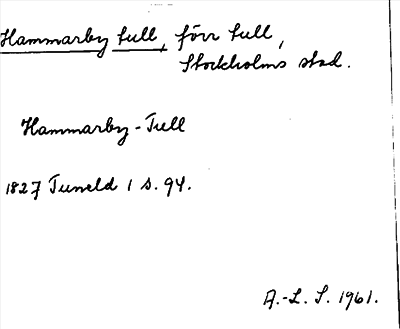 Hammarby tull, förr tull,
Stockholms stad.
Hammarby-Tull
1827 Tuneld 1 s. 94.
A.-L. S. 1961.